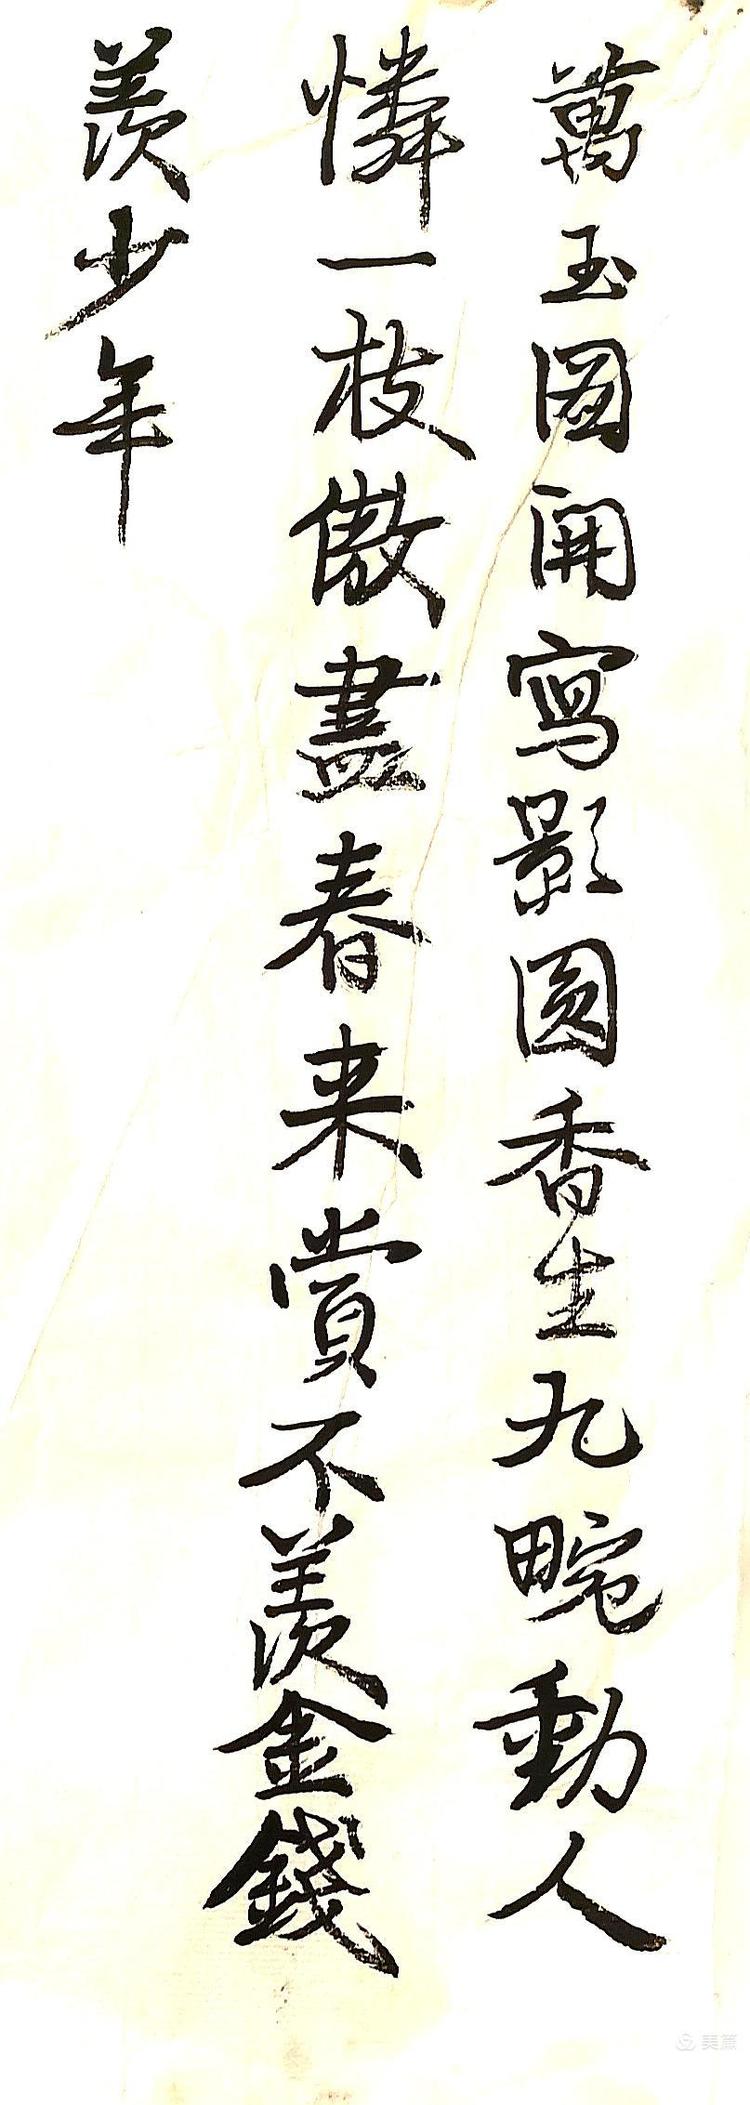 萬玉圖開寫影圓香生九畹動人
憐一枝傲盡春来賞不羨金錢
羨少年
美篇